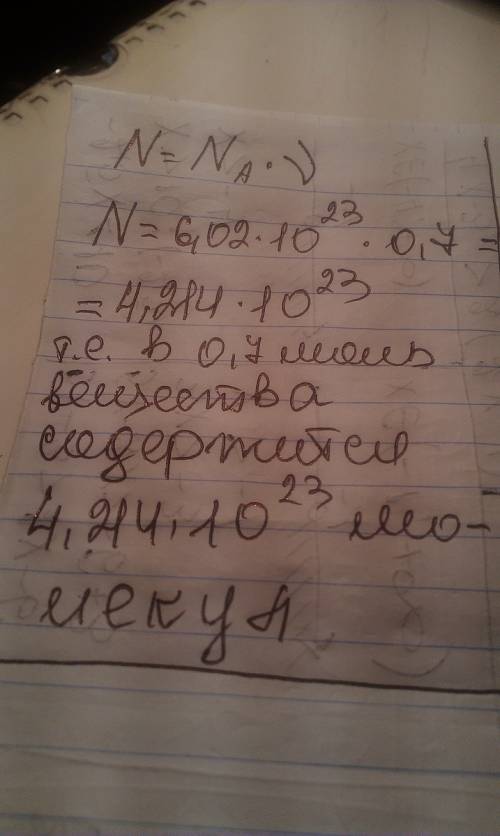 N = N_A · ν
N = 6,02 · 10²³ · 0,7 =
= 4,214 · 10²³
т.е. в 0,7 моль
вещества
содержится
4,214 · 10²³ мо-
лекул